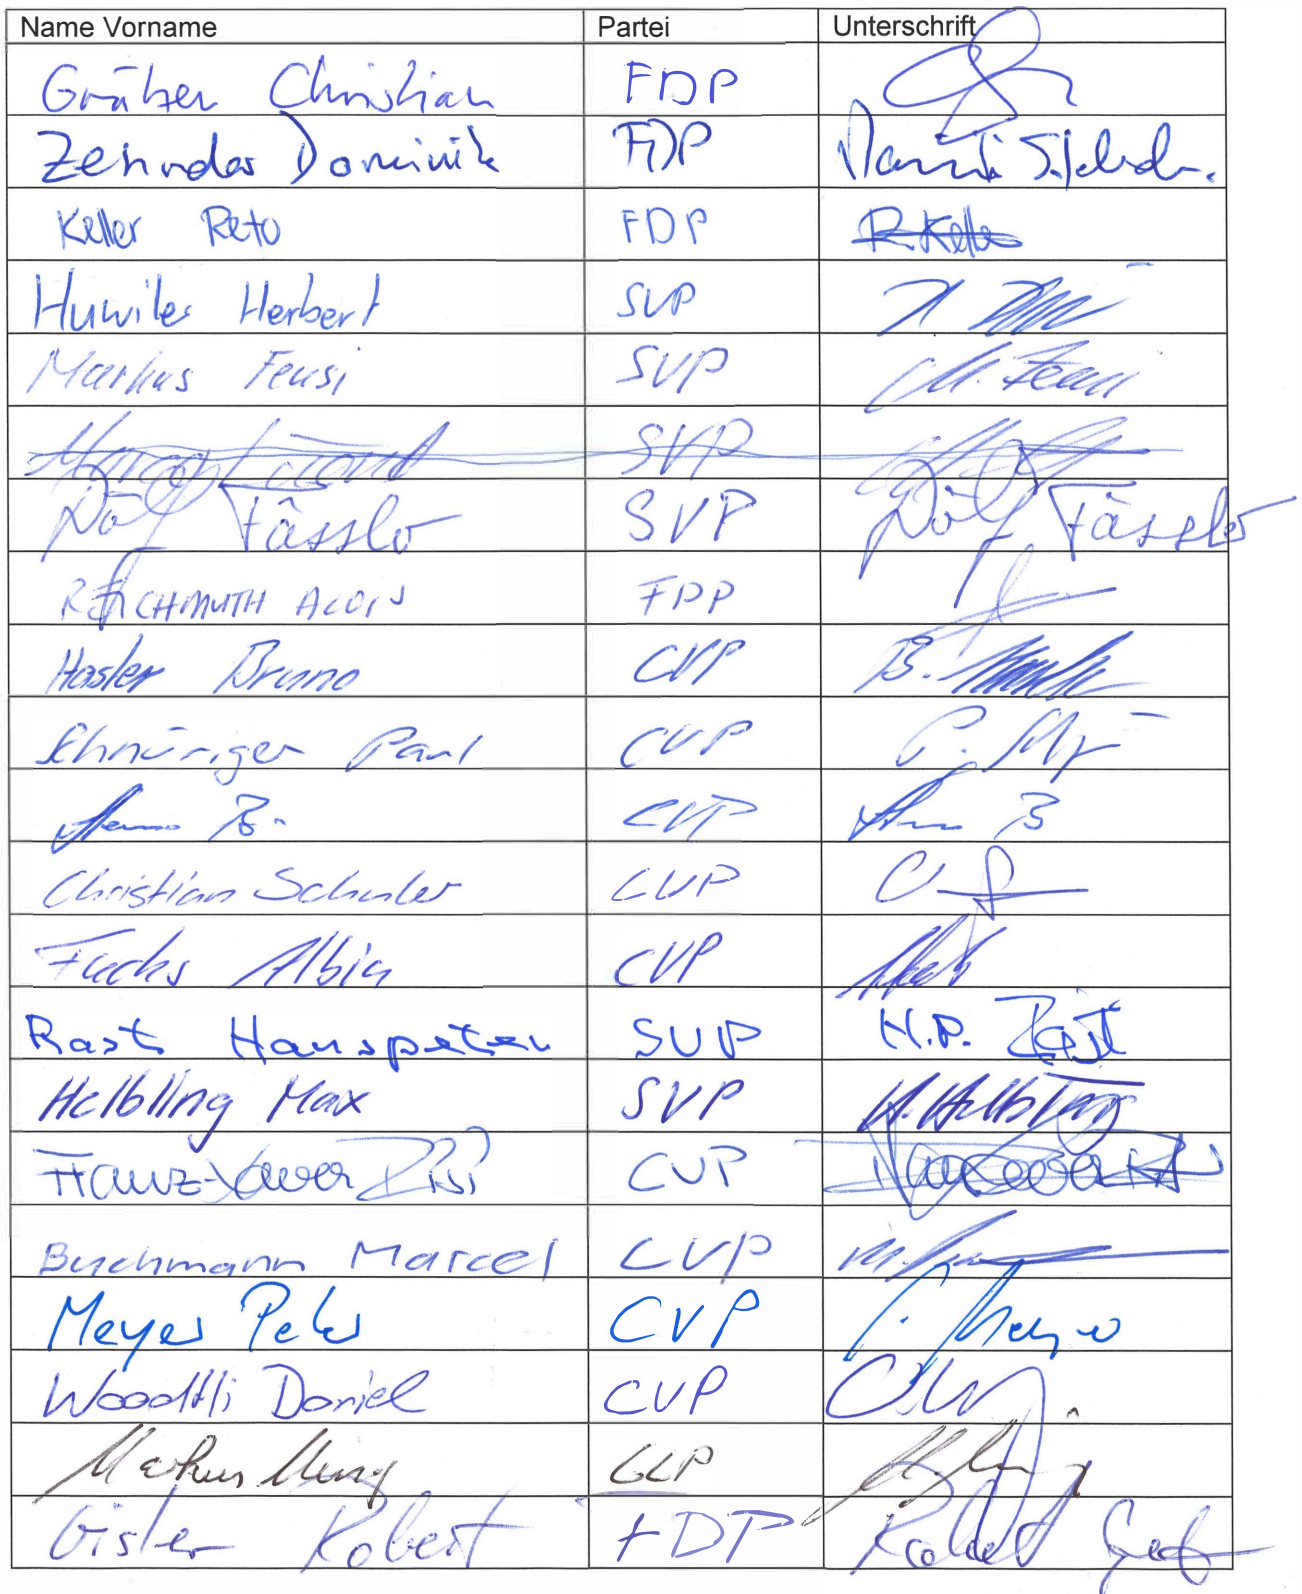 Name Vorname Partei Unterschrift
Gräber Christian FDP
Zehnder Dominik FDP
Keller Reto FDP R. Keller
Huwiler Herbert SVP
Markus Feusi SVP M. Feusi
SVP
Dölf Fässler SVP Dölf Fässler
REICHMUTH ALOIS FDP
Hasler Bruno CVP B.
Schnüriger Paul CVP P.
CVP
Christian Schuler CVP
Fuchs Albin CVP
Rast Hanspeter SVP H.P. Rast
Helbling Max SVP M. Helbling
Franz-Xaver Risi CVP
Buchmann Marcel CVP
Meyer Peter CVP P. Meyer
Woodtli Daniel CVP
Markus Ming GLP
Gisler Robert FDP Robert Gisler